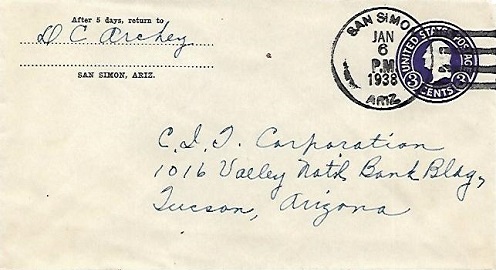 After 5 days, return to
D C Archey
SAN SIMON, ARIZ.
SAN SIMON
JAN
6
P.M
1938
ARIZ.
UNITED STATES POSTAGE
3 3
CENTS
C.I.T. Corporation
1016 Valley Natl Bank Bldg,
Tucson, Arizona